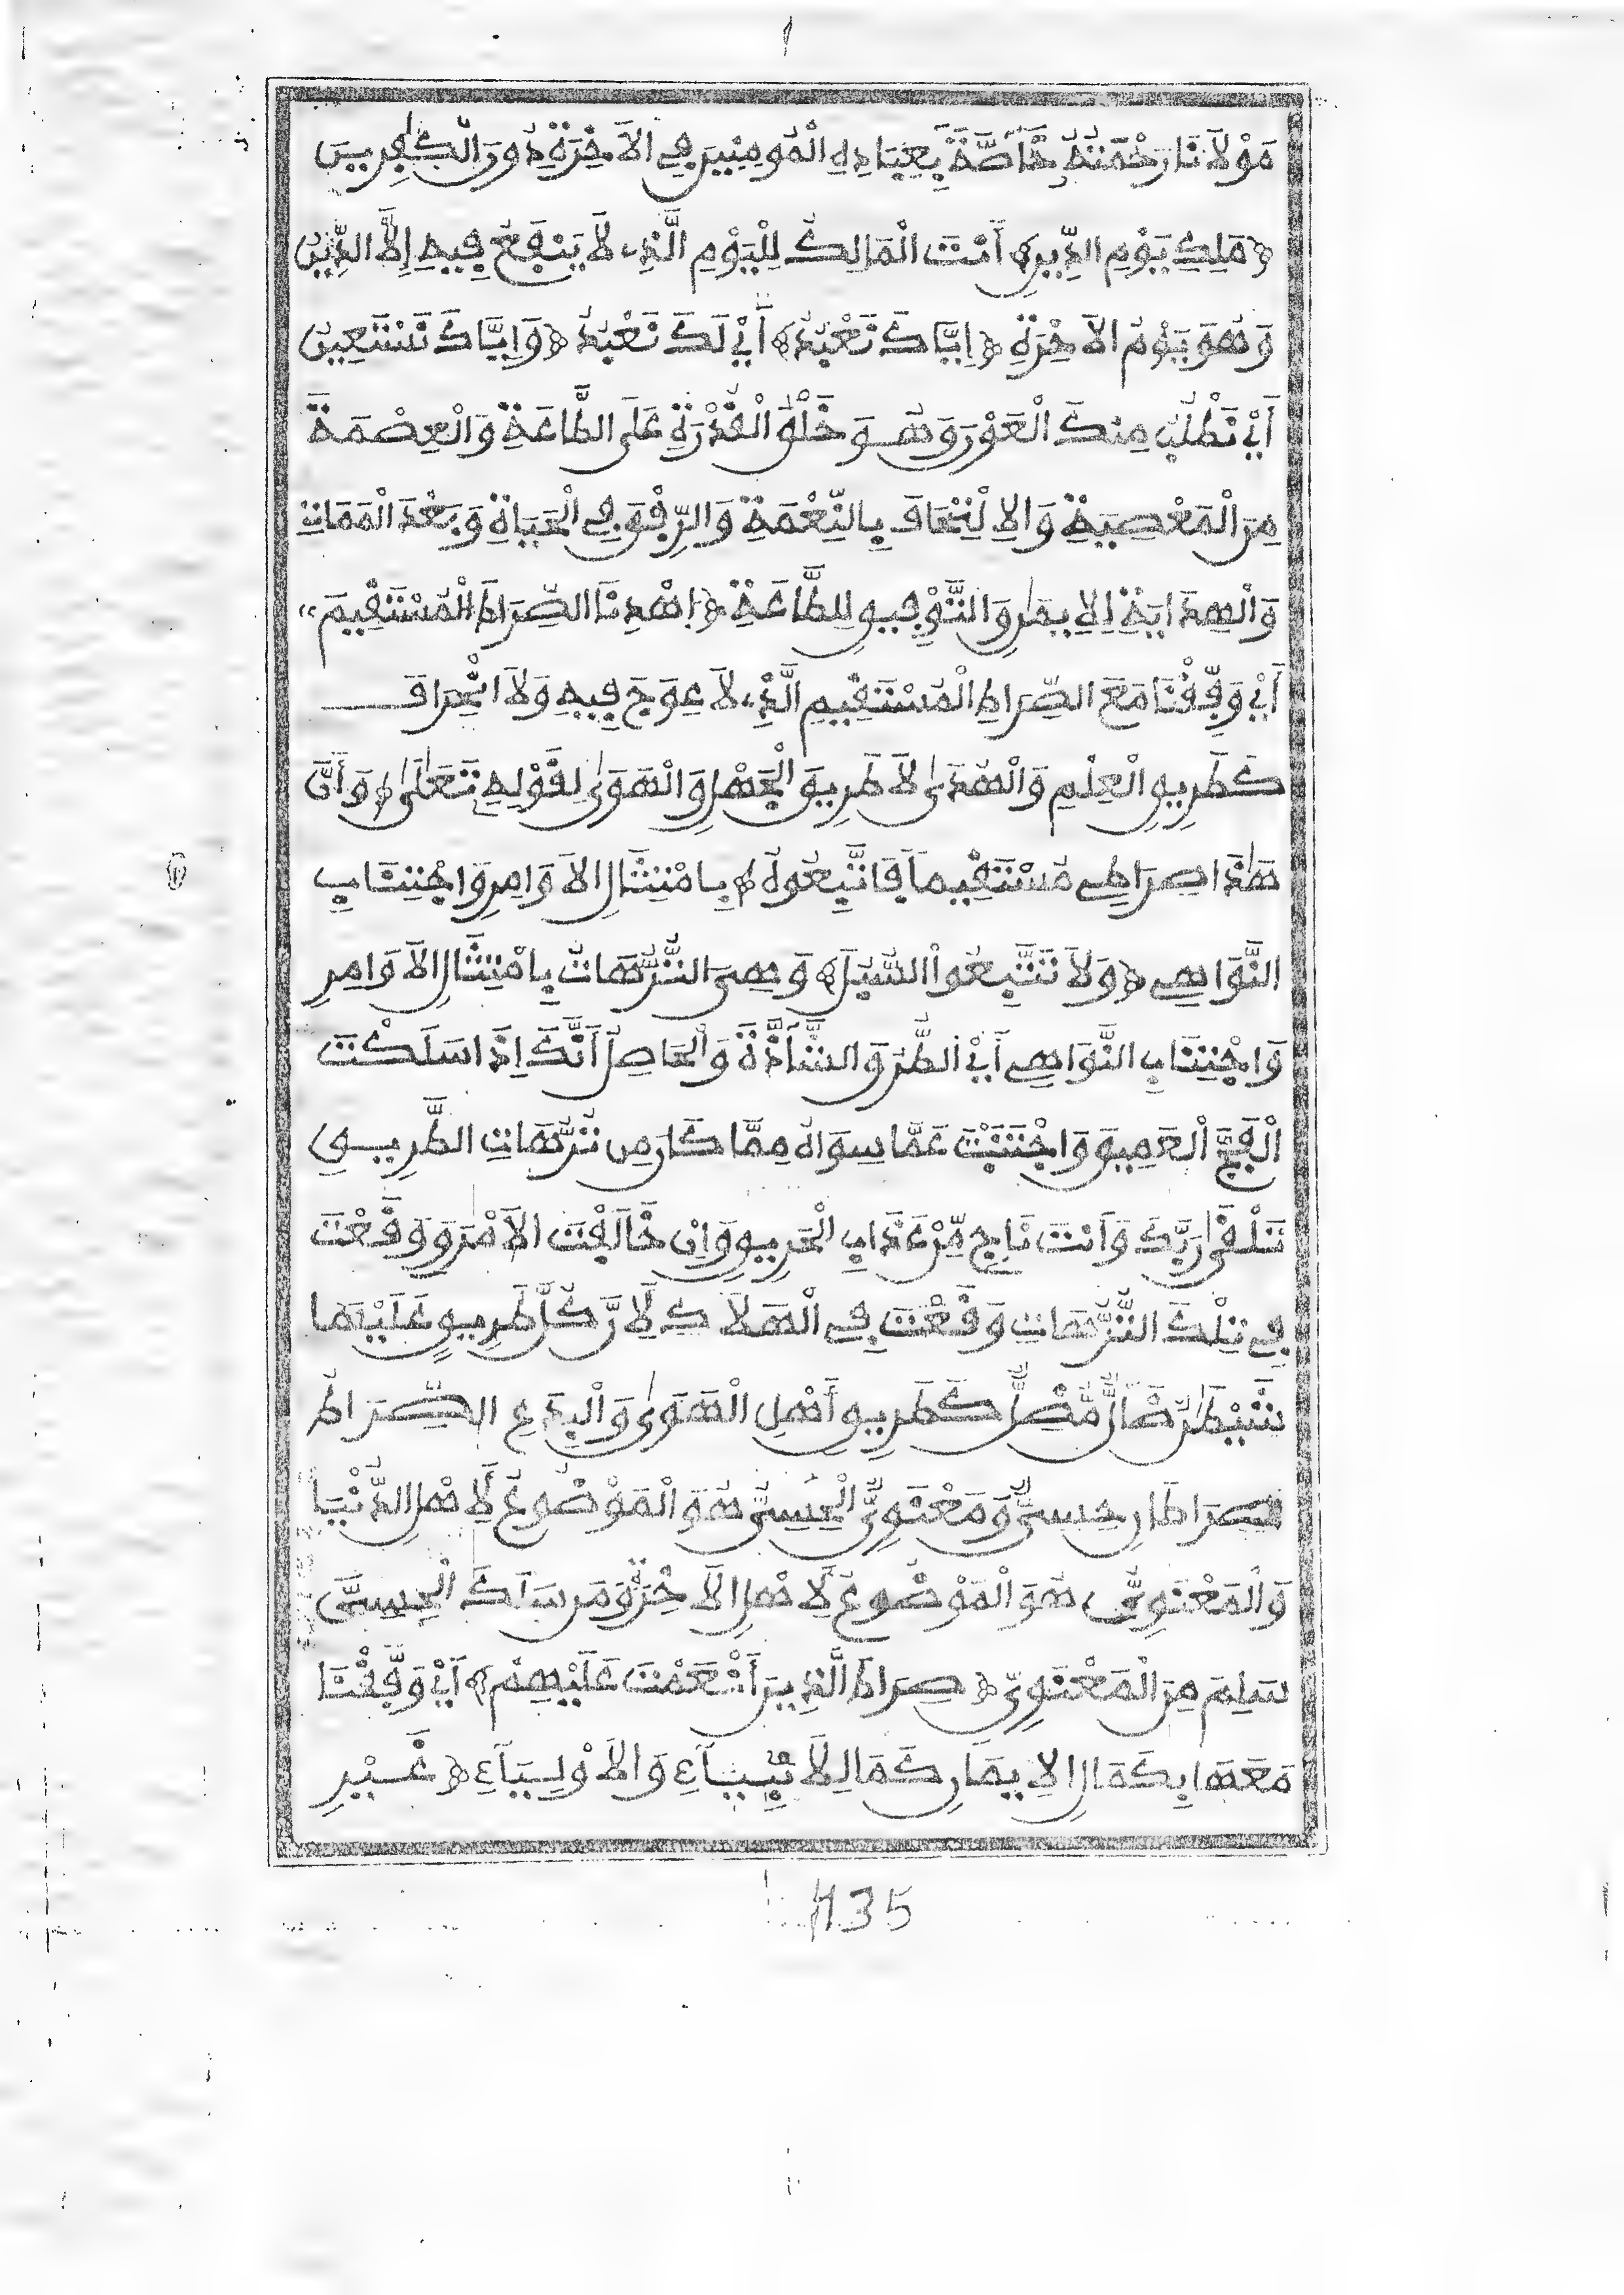 مَوْلَانَا رَحْمَتُهُ خَاصَّةٌ بِعِبَادِهِ الْمُومِنِينَ فِي الْآخِرَةِ دُونَ الْكٰفِرِينَ
﴿مَلِكِ يَوْمِ الدِّينِ﴾ أَنْتَ الْمَالِكُ لِلْيَوْمِ الَّذِي لَا يَنْفَعُ فِيهِ إِلَّا الدِّينُ
وَهُوَ يَوْمُ الْآخِرَةِ ﴿إِيَّاكَ نَعْبُدُ﴾ أَيْ لَكَ نَعْبُدُ ﴿وَإِيَّاكَ نَسْتَعِينُ
أَيْ نَطْلُبُ مِنْكَ الْعَوْنَ وَهُوَ خَلْقُ الْقُدْرَةِ عَلَى الطَّاعَةِ وَالْعِصْمَةَ
مِنَ الْمَعْصِيَةِ وَالْإِلْتِحَافَ بِالنِّعْمَةِ وَالرِّفْقَ فِي الْحَيَاةِ وَبَعْدَ الْمَمَاتِ
وَالْهِدَايَةَ لِلْإِيمَانِ وَالتَّوْفِيقِ لِلطَّاعَةِ ﴿اِهْدِنَا الصِّرَاطَ الْمُسْتَقِيمَ﴾
أَيْ وَفِّقْنَا مَعَ الصِّرَاطِ الْمُسْتَقِيمِ الَّذِي لَا عِوَجَ فِيهِ وَلَا انْحِرَافَ
كَطَرِيقِ الْعِلْمِ وَالْهُدَىٰ لَا طَرِيقَ الْجَهْلِ وَالْهَوَىٰ لِقَوْلِهِ تَعَلَىٰ ﴿وَأَنَّ
هَٰذَا صِرَاطِي مُسْتَقِيماً فَاتَّبِعُوهُ﴾ بِامْتِثَالِ الْأَوَامِرِ وَاجْتِنَابِ
النَّوَاهِي ﴿وَلَا تَتَّبِعُوا السُّبُلَ﴾ وَهِيَ التُّرَّهَاتُ بِامْتِثَالِ الْأَوَامِرِ
وَاجْتِنَابِ النَّوَاهِي أَيِ الطُّرُقِ الشَّاذَّةَ وَالْحَاصِلُ أَنَّكَ إِذَا سَلَكْتَ
الْفَجَّ الْعَمِيقَ وَاجْتَنَبْتَ عَمَّا سِوَاهُ مِمَّا كَانَ مِن تُرَّهَاتِ الطَّرِيقِ
تَلْقَىٰ رَبَّكَ وَأَنْتَ نَاجٍ مِّنْ عَذَابِ الْحَرِيقِ وَإِنْ خَالَفْتَ الْأَمْرَ وَوَقَعْتَ
فِي تِلْكَ التُّرَّهَاتِ وَقَعْتَ فِي الْهَلَاكِ لِأَنَّ كُلَّ طَرِيقٍ عَلَيْهَا
شَيْطَٰنٌ ضَالٌّ مُّضِلٌّ كَطَرِيقِ أَهْلِ الْهَوَىٰ وَالْبِدَعِ الصِّرَاطُ
صِرَاطَانِ حِسِيٌّ وَمَعْنَوِيٌّ الْحِسِيُّ هُوَ الْمَوْضُوعُ لِأَهْلِ الدُّنْيَا
وَالْمَعْنَوِيُّ هُوَ الْمَوْضُوعُ لِأَهْلِ الْآخِرَةِ وَمَن سَلَكَ الْحِسِيَّ
سَلِمَ مِنَ الْمَعْنَوِيِّ ﴿صِرَاطَ الَّذِينَ أَنْعَمْتَ عَلَيْهِمْ﴾ أَيْ وَفِّقْنَا
مَعَهَا بِكَمَالِ الْإِيمَانِ كَمَا لِلْأَنْبِيَآءِ وَالْأَوْلِيَآءِ ﴿غَيْرِ
1135